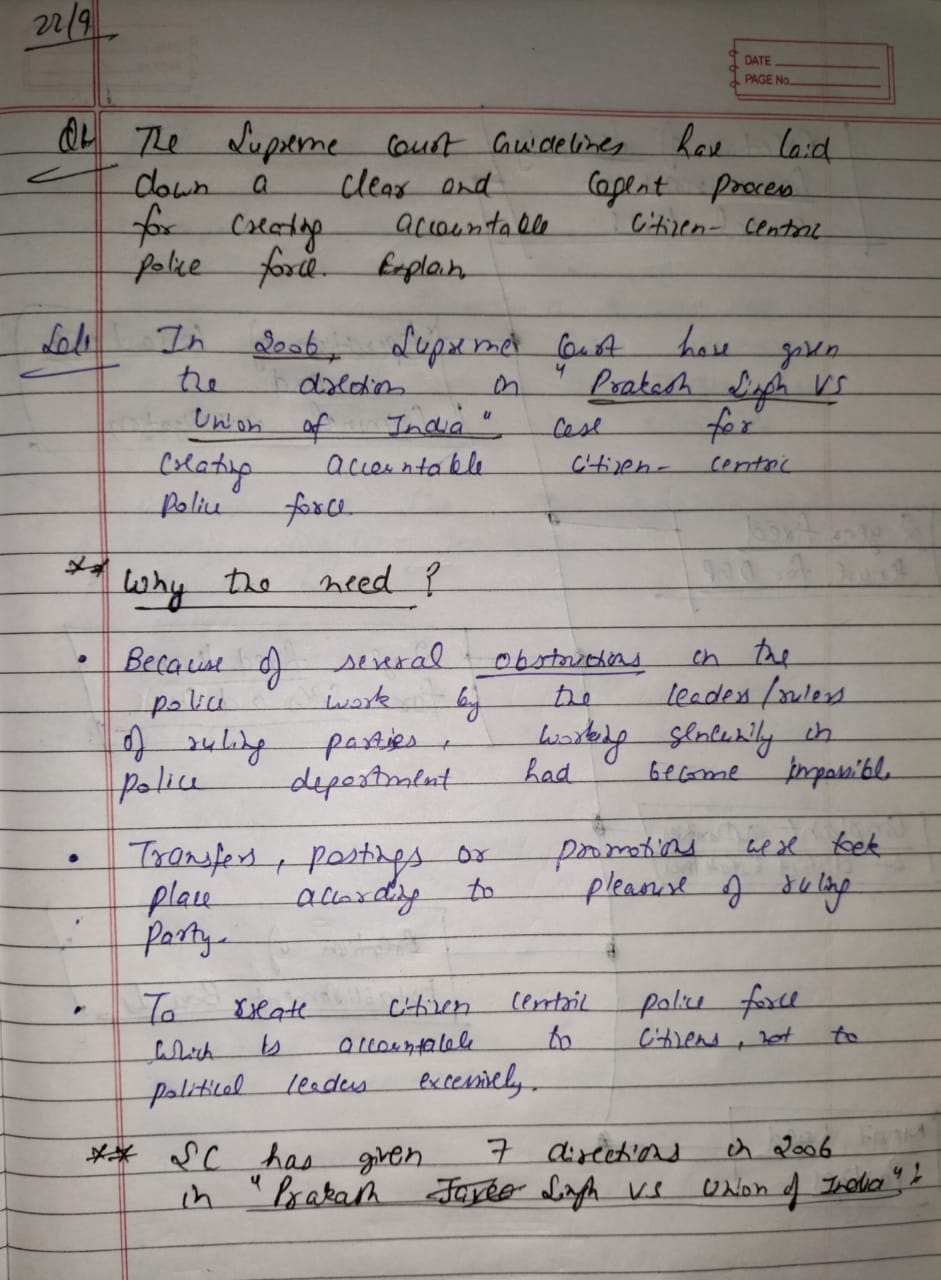 22/9
DATE
PAGE No.
Q1. The Supreme Court Guidelines have laid
down a clear and cogent process
for creating accountable citizen-centric
police force. Explain
Sol: In 2006, Supreme Court have given
the direction in "Prakash Singh VS
Union of India" case for
creating accountable citizen-centric
police force.
** Why the need?
• Because of several obstructions in the
police work by the leaders/rulers
of ruling parties, working sincerily in
police department had become impossible
• Transfers, postings or promotions were took
place according to pleasure of ruling
party.
• To create citizen centric police force
which is accountable to citizens, not to
political leaders excessively.
** SC has given 7 directions in 2006
in "Prakash Singh VS Union of India":